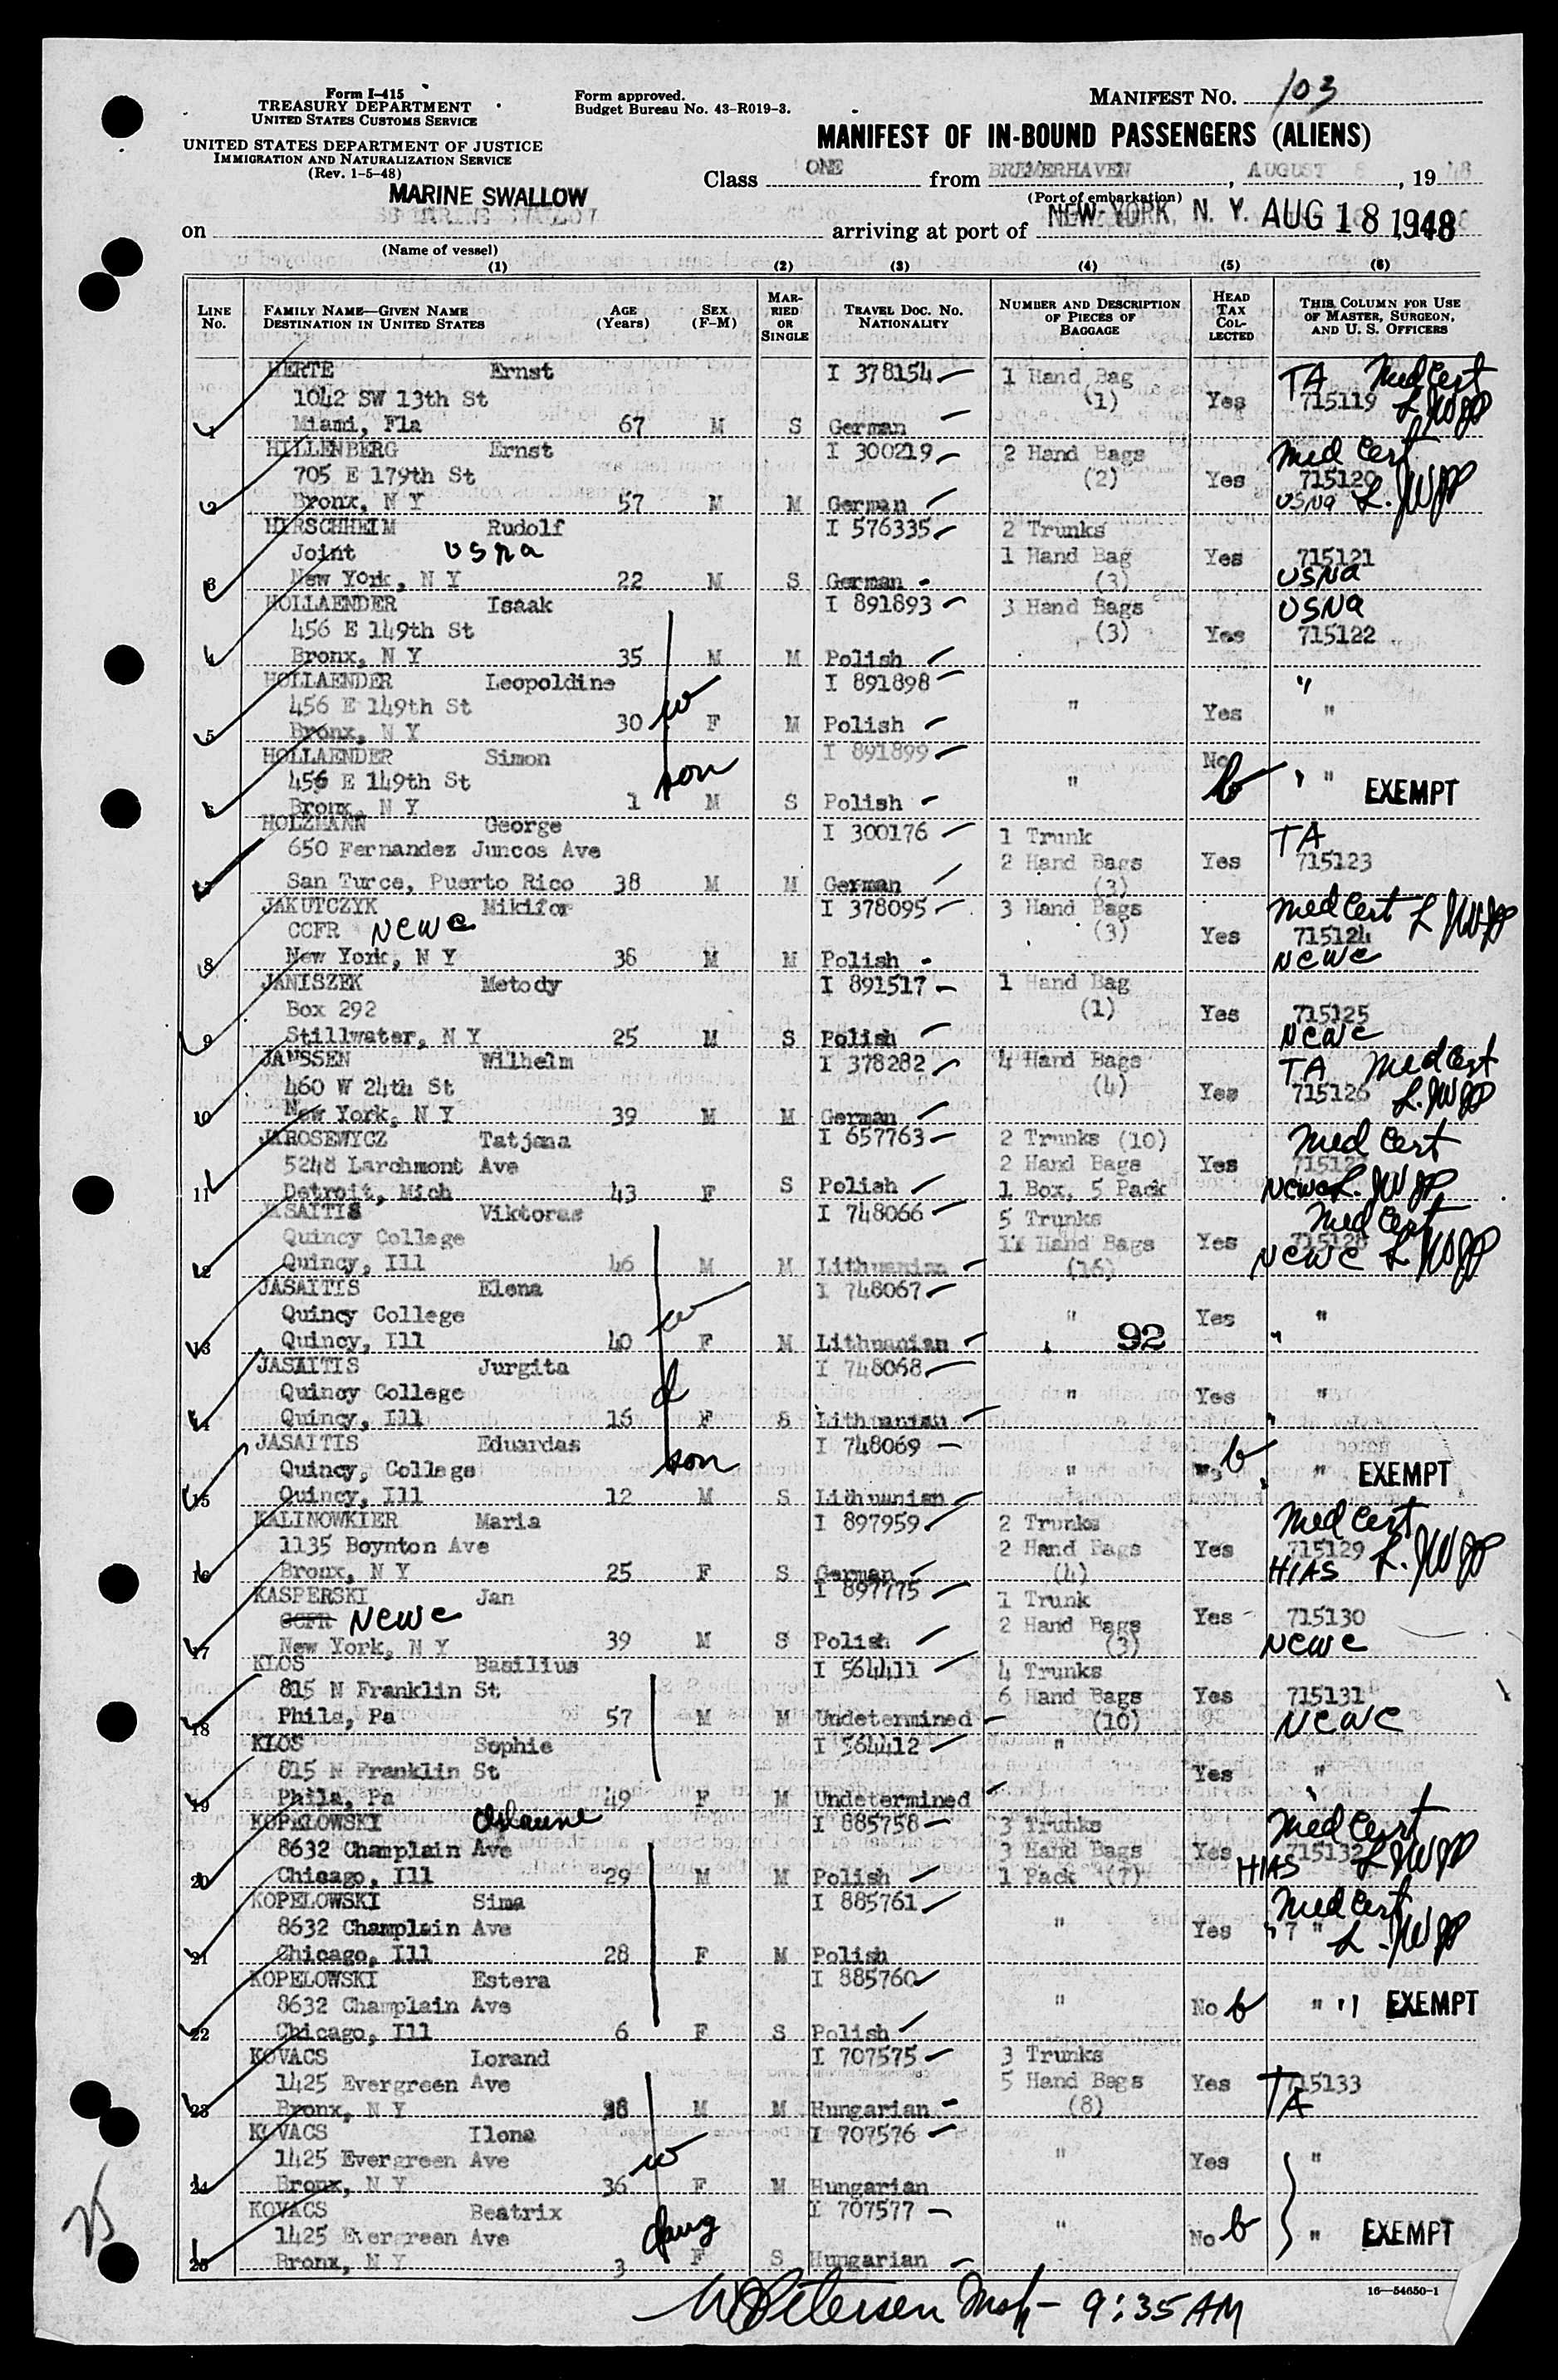 Form I-415
TREASURY DEPARTMENT
UNITED STATES CUSTOMS SERVICE
UNITED STATES DEPARTMENT OF JUSTICE
IMMIGRATION AND NATURALIZATION SERVICE
(Rev. 1-5-48)
Form approved.
Budget Bureau No. 43-R019-3.
MANIFEST NO. 103
MANIFEST OF IN-BOUND PASSENGERS (ALIENS)
Class ONE from BREMERHAVEN, AUGUST 8, 1948
(Port of embarkation)
MARINE SWALLOW
on SS MARINE SWALLOW arriving at port of NEW YORK, N. Y. AUG 18 1948
(Name of vessel)
(1) (2) (3) (4) (5) (6)
LINE No. FAMILY NAME—GIVEN NAME DESTINATION IN UNITED STATES AGE (Years) SEX (F-M) MARRIED OR SINGLE TRAVEL DOC. NO. NATIONALITY NUMBER AND DESCRIPTION OF PIECES OF BAGGAGE HEAD TAX COLLECTED THIS COLUMN FOR USE OF MASTER, SURGEON, AND U. S. OFFICERS
HERTE Ernst I 378154 1 Hand Bag TA Med Cert
1042 SW 13th St (1) Yes 715119
1 Miami, Fla 67 M S German
HILLENBERG Ernst I 300219 2 Hand Bags Med Cert
705 E 179th St (2) Yes 715120
2 Bronx, N Y 57 M M German USNA
HIRSCHHEIM Rudolf I 576335 2 Trunks
Joint USNA 1 Hand Bag Yes 715121
3 New York, N Y 22 M S German (3) USNA
HOLLAENDER Isaak I 891893 3 Hand Bags USNA
456 E 149th St (3) Yes 715122
4 Bronx, N Y 35 M M Polish
HOLLAENDER Leopoldine I 891898 "
456 E 149th St " Yes "
5 Bronx, N Y 30 w F M Polish
HOLLAENDER Simon I 891899 No
456 E 149th St son " b " EXEMPT
6 Bronx, N Y 1 M S Polish
HOLZMANN George I 300176 1 Trunk TA
650 Fernandez Juncos Ave 2 Hand Bags Yes 715123
7 San Turce, Puerto Rico 38 M M German (3)
JAKUTCZYK Mikifor I 378095 3 Hand Bags Med Cert
CCFR NCWC (3) Yes 715124
8 New York, N Y 36 M M Polish NCWC
JANISZEK Metody I 891517 1 Hand Bag
Box 292 (1) Yes 715125
9 Stillwater, N Y 25 M S Polish NCWC
JANSSEN Wilhelm I 378282 4 Hand Bags TA Med Cert
460 W 24th St (4) Yes 715126
10 New York, N Y 39 M M German
JAROSEWYCZ Tatjana I 657763 2 Trunks (10) Med Cert
5248 Larchmont Ave 2 Hand Bags Yes 715127
11 Detroit, Mich 43 F S Polish 1 Box, 5 Pack NCWC
JASAITIS Viktoras I 748066 5 Trunks Med Cert
Quincy College 11 Hand Bags Yes 715128
12 Quincy, Ill 46 M M Lithuanian (16) NCWC
JASAITIS Elena I 748067
Quincy College " Yes "
13 Quincy, Ill 40 w F M Lithuanian 92 "
JASAITIS Jurgita I 748068
Quincy College d " Yes "
14 Quincy, Ill 16 F S Lithuanian
JASAITIS Eduardas I 748069
Quincy, College son " b " EXEMPT
15 Quincy, Ill 12 M S Lithuanian
KALINOWKIER Maria I 897959 2 Trunks Med Cert
1135 Boynton Ave 2 Hand Bags Yes 715129
16 Bronx, N Y 25 F S German (4) HIAS
KASPERSKI Jan I 897775 1 Trunk
CCFR NCWC 2 Hand Bags Yes 715130
17 New York, N Y 39 M S Polish (3) NCWC
KLOS Basilius I 564411 4 Trunks
815 N Franklin St 6 Hand Bags Yes 715131
18 Phila, Pa 57 M M Undetermined (10) NCWC
KLOS Sophie I 564412 "
815 N Franklin St Yes "
19 Phila, Pa 49 F M Undetermined
KOPELOWSKI I 885758 3 Trunks Med Cert
8632 Champlain Ave 3 Hand Bags Yes 715132
20 Chicago, Ill 29 M M Polish 1 Pack (7) HIAS
KOPELOWSKI Sima I 885761 Med Cert
8632 Champlain Ave " Yes "
21 Chicago, Ill 28 F M Polish
KOPELOWSKI Estera I 885760
8632 Champlain Ave " No b " EXEMPT
22 Chicago, Ill 6 F S Polish
KOVACS Lorand I 707575 3 Trunks
1425 Evergreen Ave 5 Hand Bags Yes 715133
23 Bronx, N Y M M Hungarian (8) TA
KOVACS Ilona I 707576
1425 Evergreen Ave w " Yes "
24 Bronx, N Y 36 F M Hungarian
KOVACS Beatrix I 707577
1425 Evergreen Ave daug " No b " EXEMPT
25 Bronx, N Y 3 F S Hungarian
25
16—54650-1
W Petersen 9:35 AM